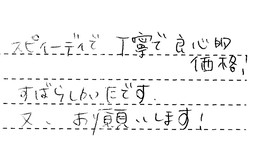 スピィーディで 丁寧で良心的
価格!
すばらしかったです.
又、お願いします!